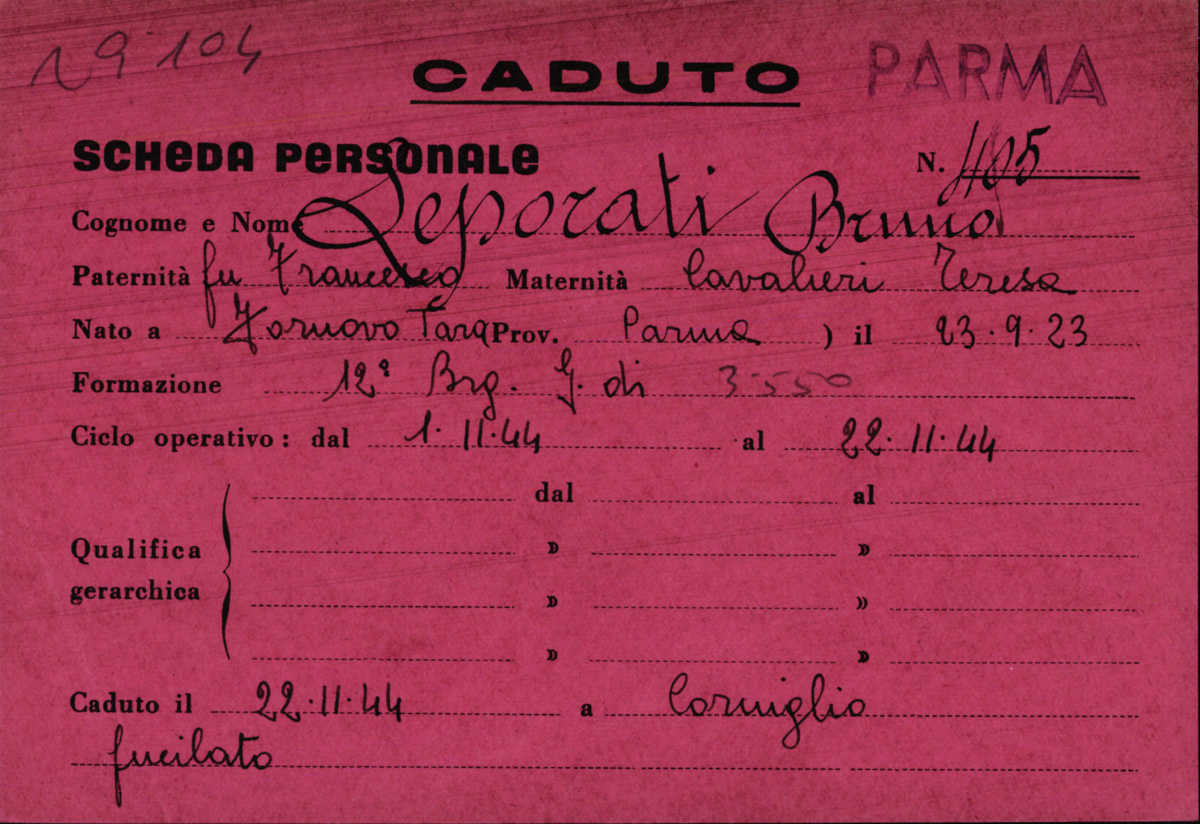 19104
CADUTO PARMA
SCHEDA PERSONALE N. 405
Cognome e Nome Leporati Bruno
Paternità fu Francesco Maternità Cavalieri Teresa
Nato a Fornovo Taro Prov. Parma ) il 23.9.23
Formazione 12ª Brg. G. di 3550
Ciclo operativo: dal 1.11.44 al 22.11.44
dal al
Qualifica » »
gerarchica » »
» »
Caduto il 22.11.44 a Corniglio
fucilato